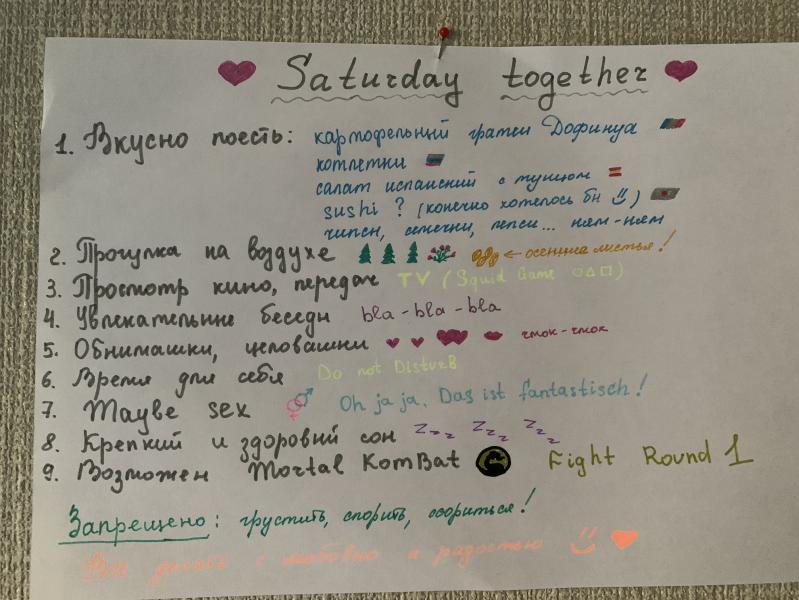 Saturday together
1. Вкусно поесть: картофельный гратен Дофинуа
котлетки
салат испанский с тунцом
sushi ? (конечно хотелось бы )
чипсы, семечки, пепси... ням-ням
2. Прогулка на воздухе ← осенние листья!
3. Просмотр кино, передач TV (Squid Game ○△□)
4. Увлекательные беседы bla-bla-bla
5. Обнимашки, целовашки чмок-чмок
6. Время для себя Do not DisturB
7. Maybe sex Oh ja ja. Das ist fantastisch!
8. Крепкий и здоровый сон Zzzz Zzzz Zzzz
9. Возможен Mortal KomBat Fight Round 1
Запрещено: грустить, спорить, ссориться!
Всё делать с любовью и радостью